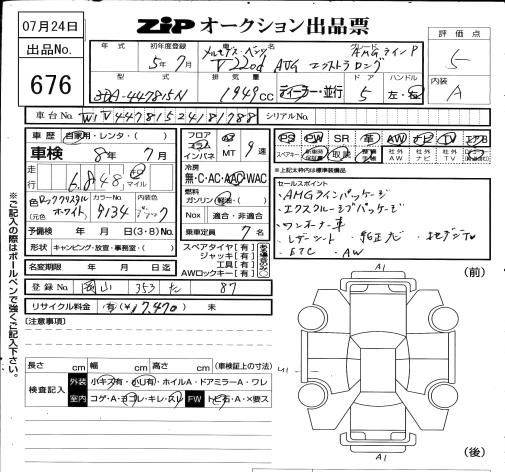 07月24日
出品No.
676
ZIP オークション出品票
年式 初年度登録 車名 グレード
5年7月 メルセデス・ベンツ AMGラインP
V220d AVG エクストラロング
型式 排気量 ドア ハンドル
3DA-447815N 1949cc ディーラー・並行 5 左・右
評価点
5
内装
A
車台No. W1V44781524181788 シリアルNo.
車歴 自家用・レンタ・( )
車検 8年7月
走行 6,848 マイル
色 ロッククリスタルホワイト (元色) カラーNo. 9134 内装色 ブラック
予備検 月 日 (3・8)No.
形状 キャンピング・放宣・事務室・( )
名変期限 年 月 日迄
フロア コラム インパネ MT 9速
無・C・AC・AAC・WAC
燃料 ガソリン・軽油・( )
Nox 適合・非適合
乗車定員 7名
スペアタイヤ[有]
ジャッキ[有]
工具[有]
AWロックキー[有]
PS PW SR 革 AW ナビ TV エアB
スペアキー 取説 社外AW 社外ナビ 社外TV
*上記太枠内は標準装備品
セールスポイント
・AMGラインパッケージ
・エクスクルーシブパッケージ
・ワンオーナー車
・レザーシート ・純正ナビ ・地デジTV
・ETC ・AW
登録No. 岡山 353 た 87
リサイクル料金 有(¥17,470) 未
[注意事項]
長さ cm 幅 cm 高さ cm (車検証上の寸法)
検査記入 外装 小キズ有・小凹有・ホイルA・ドアミラーA・ワレ
室内 コゲ・A・ヨゴレ・キレ・スレ FW トビ石・A・×要ス
※ご記入の際はボールペンで強くご記入下さい。
(前)
A1
U1
A1
(後)